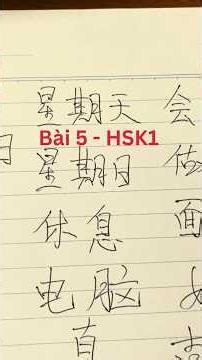 星期天 会
Bài 5 - HSK1
星期日 做
休息 面
电脑